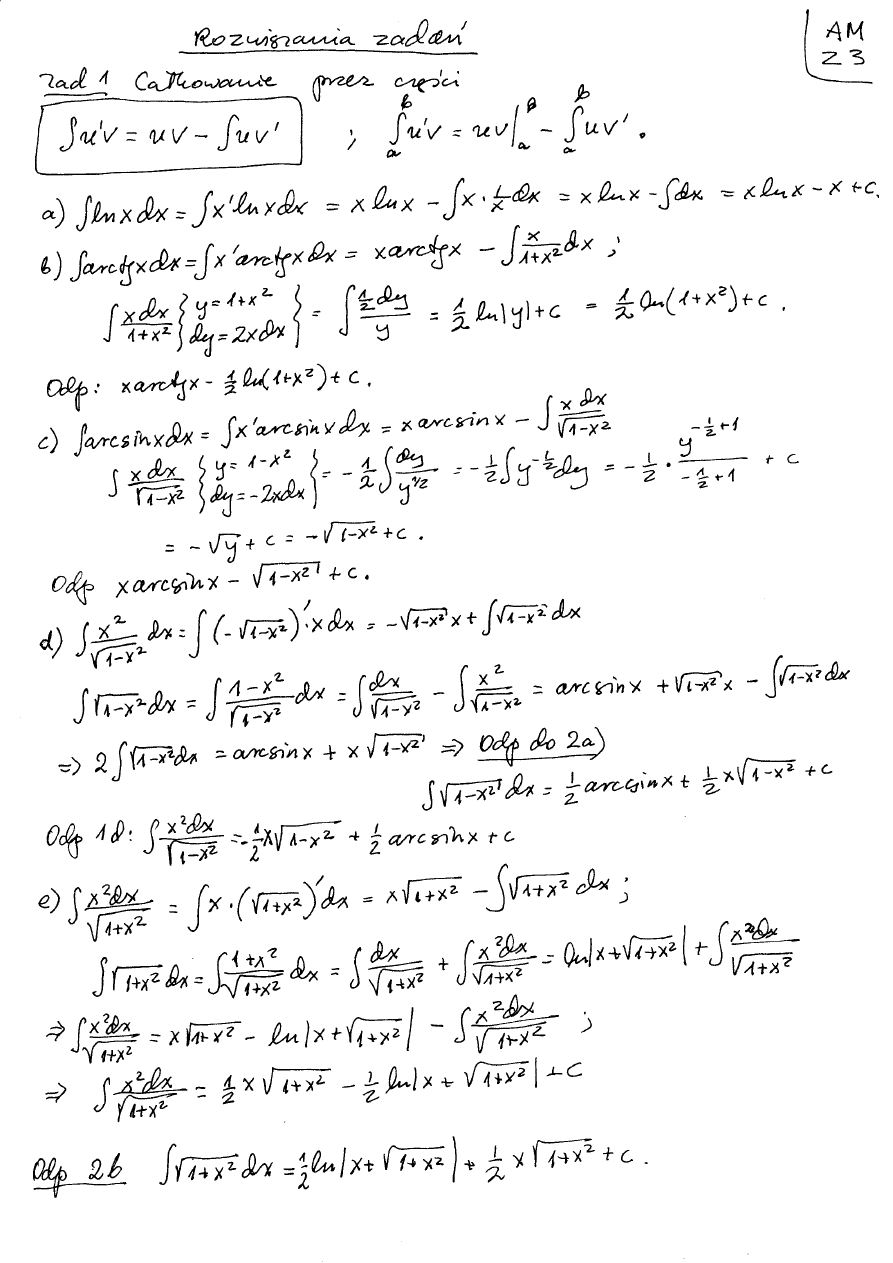 Rozwiązania zadań
AM
23
Zad 1 Całkowanie przez części
∫u'v = uv - ∫uv' ; ∫_a^b u'v = uv|_a^b - ∫_a^b uv' .
a) ∫lnxdx = ∫x'lnxdx = x lnx - ∫x·1/x dx = x lnx - ∫dx = x lnx - x + c.
b) ∫arctgxdx = ∫x'arctgxdx = xarctgx - ∫x/(1+x²)dx ;
∫xdx/(1+x²) {y = 1+x² dy = 2xdx} = ∫(½dy)/y = ½ ln|y| + c = ½ ln(1+x²) + c .
Odp: xarctgx - ½ ln(1+x²) + c .
c) ∫arcsinxdx = ∫x'arcsinxdx = xarcsinx - ∫x dx/√(1-x²)
∫xdx/√(1-x²) {y = 1-x² dy = -2xdx} = -½∫dy/y^(1/2) = -½∫y^(-½)dy = -½ · y^(-½+1)/(-½+1) + c
= -√y + c = -√(1-x²) + c .
Odp xarcsinx - √(1-x²) + c .
d) ∫x²/√(1-x²) dx = ∫(-√(1-x²))'·x dx = -√(1-x²) x + ∫√(1-x²) dx
∫√(1-x²)dx = ∫(1-x²)/√(1-x²) dx = ∫dx/√(1-x²) - ∫x²/√(1-x²) = arcsinx + √(1-x²) x - ∫√(1-x²)dx
⇒ 2∫√(1-x²)dx = arcsinx + x√(1-x²) ⇒ Odp do 2a)
∫√(1-x²) dx = ½ arcsinx + ½ x√(1-x²) + c
Odp 1d: ∫x²dx/√(1-x²) = -½x√(1-x²) + ½ arcsinx + c
e) ∫x²dx/√(1+x²) = ∫x·(√(1+x²))'dx = x√(1+x²) - ∫√(1+x²) dx ;
∫√(1+x²) dx = ∫(1+x²)/√(1+x²) dx = ∫dx/√(1+x²) + ∫x²dx/√(1+x²) = ln|x+√(1+x²)| + ∫x²dx/√(1+x²)
⇒ ∫x²dx/√(1+x²) = x√(1+x²) - ln|x+√(1+x²)| - ∫x²dx/√(1+x²) ;
⇒ ∫x²dx/√(1+x²) = ½ x√(1+x²) - ½ ln|x+√(1+x²)| + c
Odp 2b ∫√(1+x²) dx = ½ ln|x+√(1+x²)| + ½ x√(1+x²) + c .